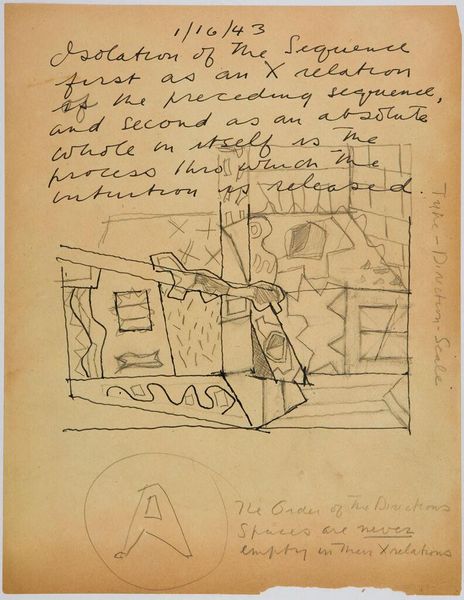 1/16/43
Isolation of the Sequence
first as an X relation
of the preceding sequence,
and second as an absolute
whole in itself is the
process thro which the
intuition is released.
Type-Direction-Scale
A
The Order of the Directions
Spaces are never
empty in their X relations